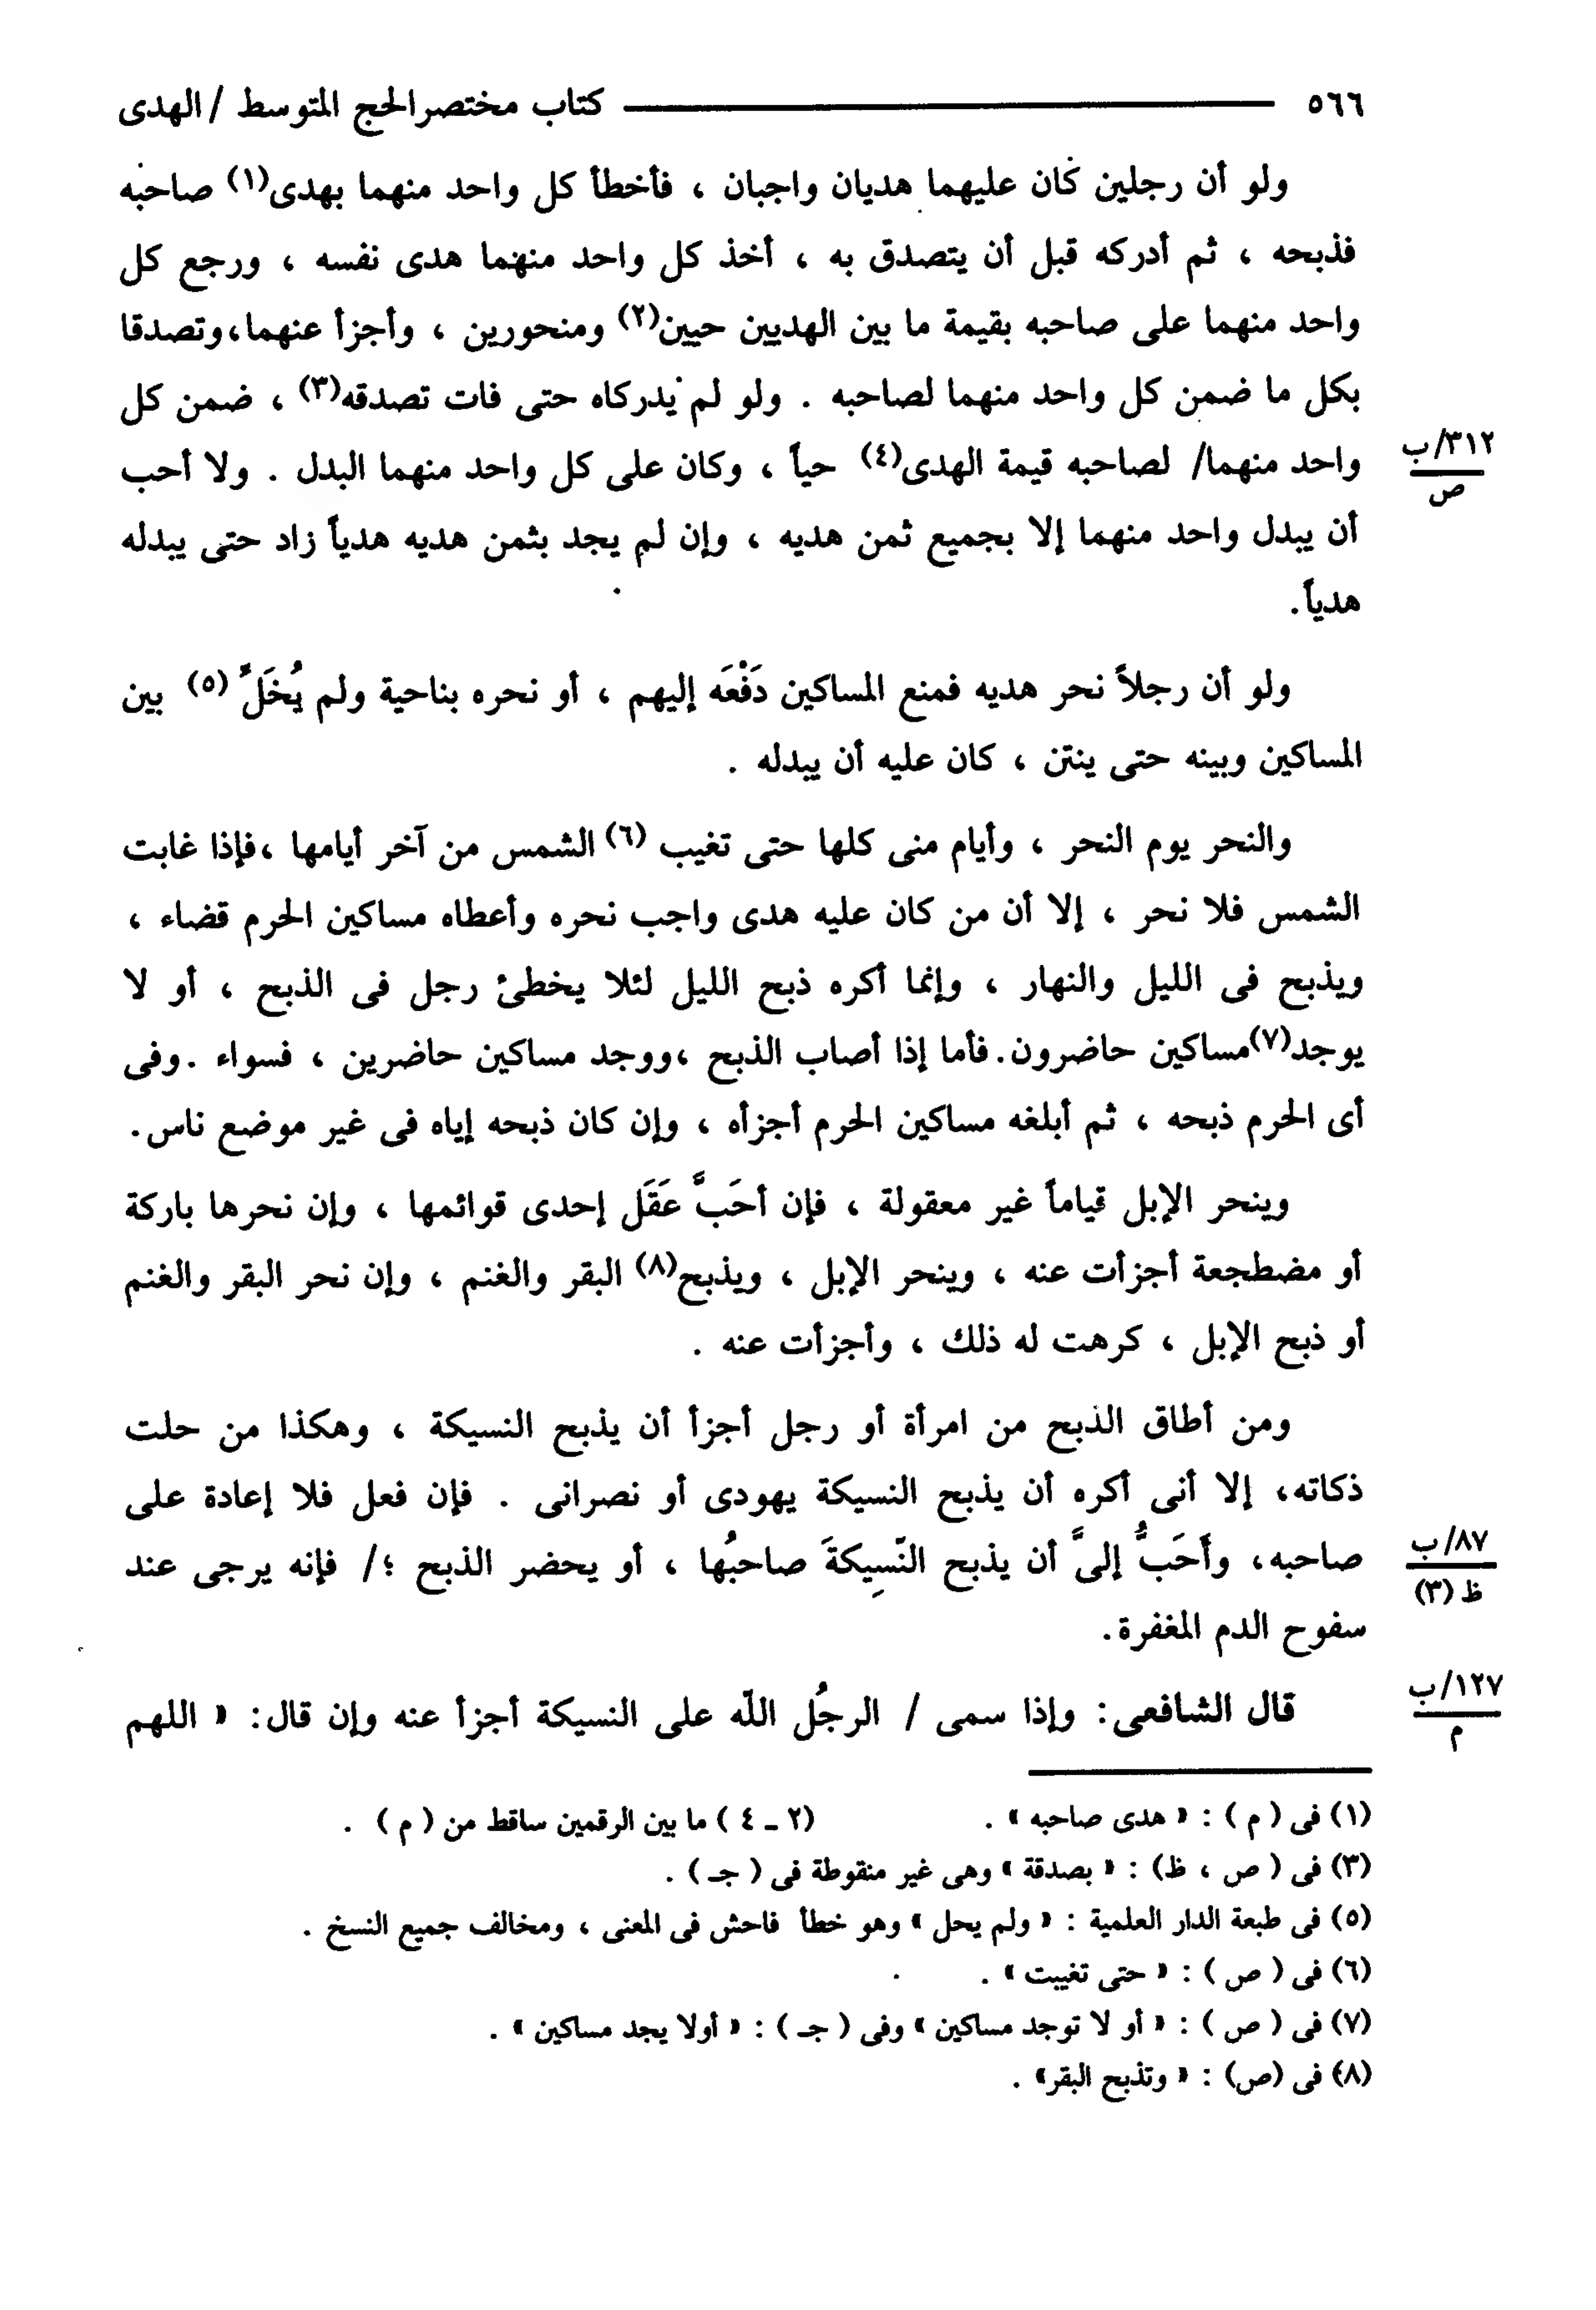 ٥٦٦ ــــــــــــــــــــ كتاب مختصر الحج المتوسط / الهدى
ولو أن رجلين كان عليهما هديان واجبان ، فأخطأ كل واحد منهما بهدى(١) صاحبه
فذبحه ، ثم أدركه قبل أن يتصدق به ، أخذ كل واحد منهما هدى نفسه ، ورجع كل
واحد منهما على صاحبه بقيمة ما بين الهديين حيين(٢) ومنحورين ، وأجزأ عنهما،وتصدقا
بكل ما ضمن كل واحد منهما لصاحبه . ولو لم يدركاه حتى فات تصدقه(٣) ، ضمن كل
واحد منهما/ لصاحبه قيمة الهدى(٤) حياً ، وكان على كل واحد منهما البدل . ولا أحب
٣١٢/ب
ص
أن يبدل واحد منهما إلا بجميع ثمن هديه ، وإن لم يجد بثمن هديه هدياً زاد حتى يبدله
هدياً.
ولو أن رجلاً نحر هديه فمنع المساكين دَفْعَه إليهم ، أو نحره بناحية ولم يُخَلِّ (٥) بين
المساكين وبينه حتى ينتن ، كان عليه أن يبدله .
والنحر يوم النحر ، وأيام منى كلها حتى تغيب (٦) الشمس من آخر أيامها ،فإذا غابت
الشمس فلا نحر ، إلا أن من كان عليه هدى واجب نحره وأعطاه مساكين الحرم قضاء ،
ويذبح فى الليل والنهار ، وإنما أكره ذبح الليل لئلا يخطئ رجل فى الذبح ، أو لا
يوجد(٧)مساكين حاضرون.فأما إذا أصاب الذبح ،ووجد مساكين حاضرين ، فسواء .وفى
أى الحرم ذبحه ، ثم أبلغه مساكين الحرم أجزأه ، وإن كان ذبحه إياه فى غير موضع ناس.
وينحر الإبل قياماً غير معقولة ، فإن أحَبَّ عَقَل إحدى قوائمها ، وإن نحرها باركة
أو مضطجعة أجزأت عنه ، وينحر الإبل ، ويذبح(٨) البقر والغنم ، وإن نحر البقر والغنم
أو ذبح الإبل ، كرهت له ذلك ، وأجزأت عنه .
ومن أطاق الذبح من امرأة أو رجل أجزأ أن يذبح النسيكة ، وهكذا من حلت
ذكاته، إلا أنى أكره أن يذبح النسيكة يهودى أو نصرانى . فإن فعل فلا إعادة على
صاحبه، وأَحَبُّ إلىَّ أن يذبح النّسِيكةَ صاحبُها ، أو يحضر الذبح ؛/ فإنه يرجى عند
٨٧/ب
ظ (٣)
سفوح الدم المغفرة.
قال الشافعى: وإذا سمى / الرجُل اللّه على النسيكة أجزأ عنه وإن قال: « اللهم
١٢٧/ب
م
(١) فى ( م ) : « هدى صاحبه » . (٢ ـ ٤ ) ما بين الرقمين ساقط من ( م ) .
(٣) فى ( ص ، ظ) : « بصدقة » وهى غير منقوطة فى ( جـ ) .
(٥) فى طبعة الدار العلمية : « ولم يحل » وهو خطأ فاحش فى المعنى ، ومخالف جميع النسخ .
(٦) فى ( ص ) : « حتى تغييت » .
(٧) فى ( ص ) : « أو لا توجد مساكين » وفى ( جـ ) : « أولا يجد مساكين » .
(٨) فى (ص) : « وتذبح البقر» .